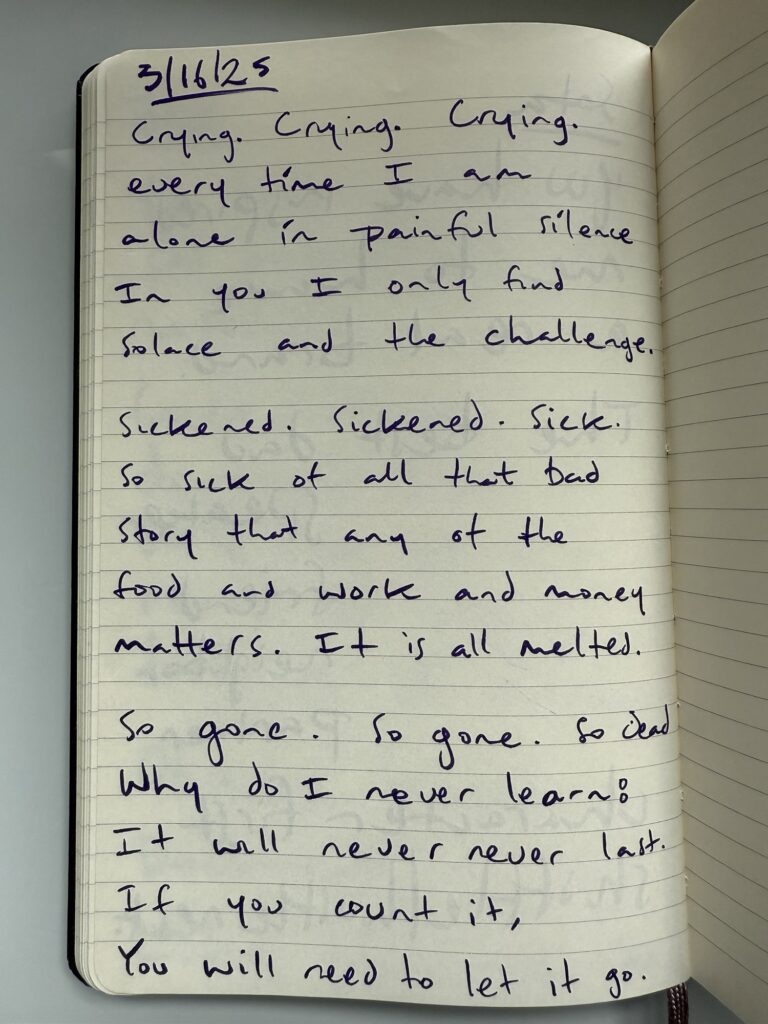 3/16/25
Crying. Crying. Crying.
every time I am
alone in painful silence
In you I only find
solace and the challenge.
Sickened. Sickened. Sick.
So sick of all that bad
story that any of the
food and work and money
matters. It is all melted.
So gone. So gone. So dead
Why do I never learn:
It will never never last.
If you count it,
You will need to let it go.